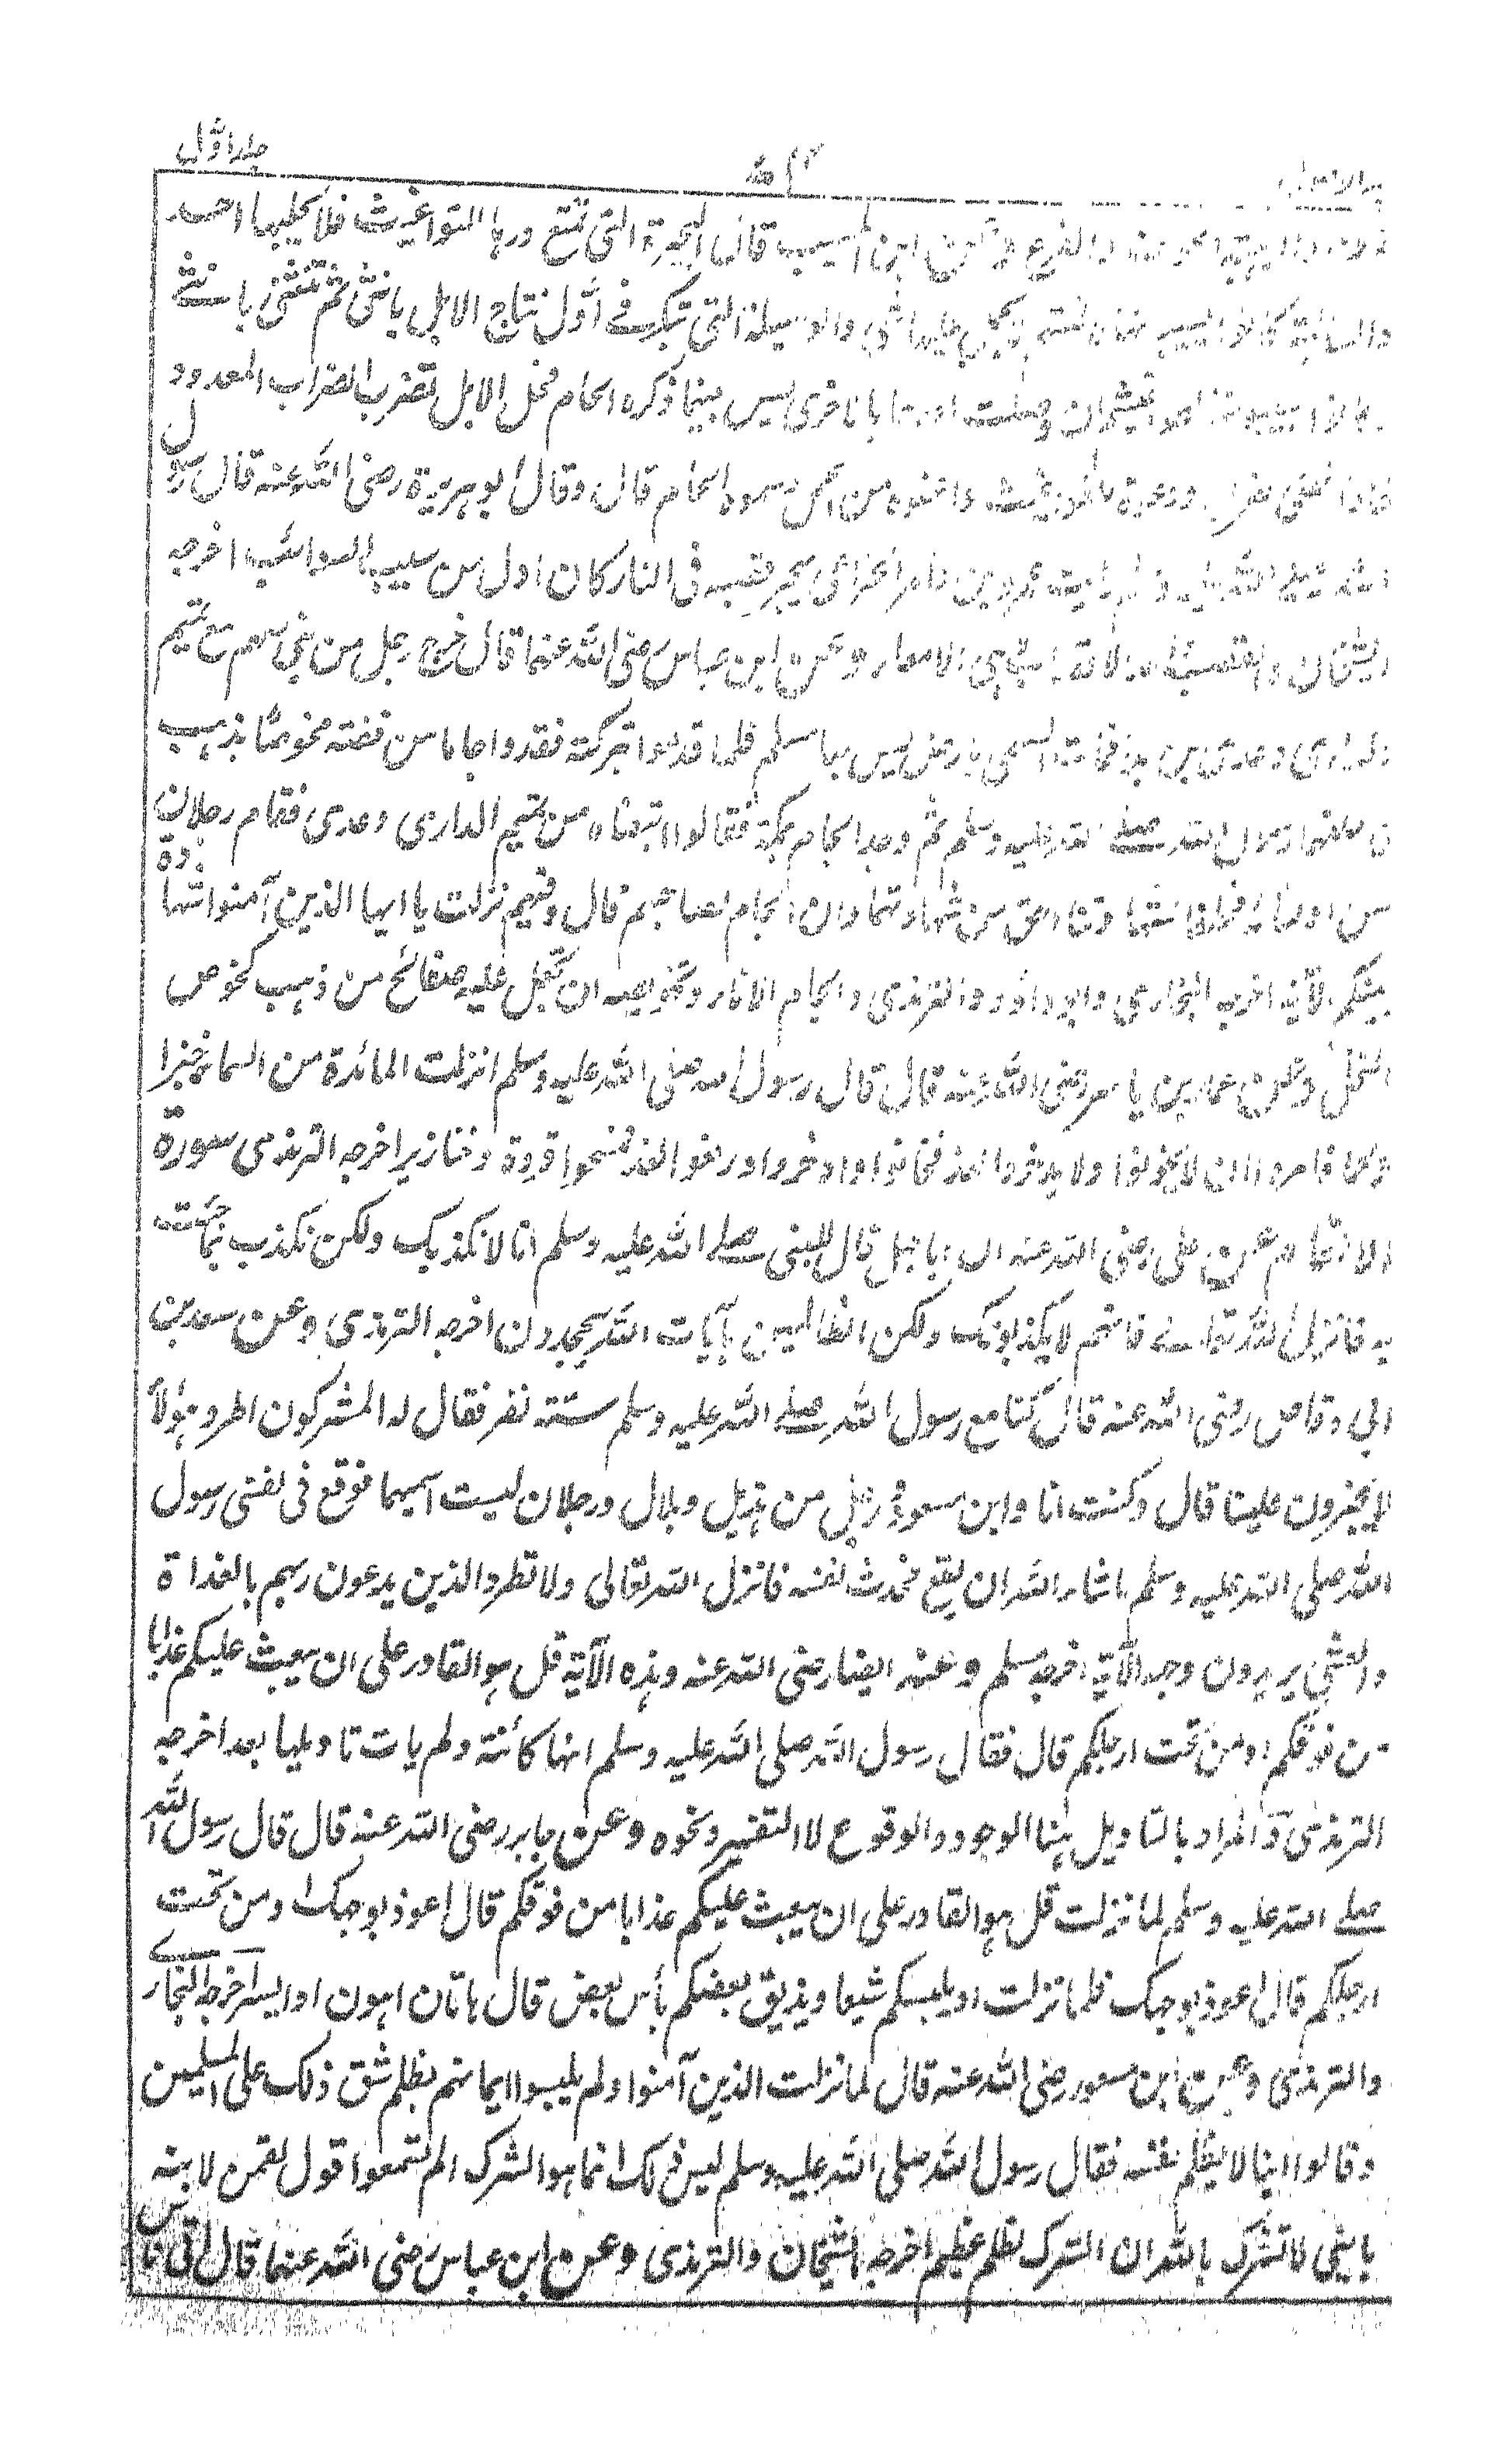 جلد اول
ابن المسيب قال البحيرة التى تمنع درها للتواغيت فلا يحلبها احد
والوصيلة التى تبكر فى اول نتاج الابل بانثى ثم تثنى بانثى
وصلت بالاخرى ليس بينما ذكر والحام فحل الابل يضرب الضراب المعدود
من الحمل وسموه الحام قال وقال ابو هريرة رضى الله عنه قال رسول
الخزاعى يجر قصبه فى النار كان اول من سيب السوائب اخرجه
الشيخان والقصب الامعاء وعن ابن عباس رضى الله عنهما قال خرج رجل من بنى سهم مع تميم
الدارى وعدى بن فمات السهمى بارض ليس بها مسلم فلما قدموا بتركته فقدوا جاما من فضة مخوصا بذهب
رسول الله صلى الله عليه وسلم ثم وجد الجام بمكة فقالوا ابتعناه من تميم الدارى وعدى فقام رجلان
من شهادتهما وان الجام لصاحبهم قال وفيهم نزلت يا ايها الذين آمنوا شهادة
بينكم الآية اخرجه البخارى وابو داؤد والترمذى والجام الاناء وتخويصه ان يجعل عليه صفائح من ذهب كخوص
النخل وعن عمار بن ياسر رضى الله عنه قال قال رسول الله صلى الله عليه وسلم انزلت المائدة من السماء خبزا
ولحما وامروا ان لا يخونوا ولا يدخروا لغد فخانوا وادخروا ورفعوا لغد فمسخوا قردة وخنازير اخرجه الترمذى سورة
الانعام عن على رضى الله عنه ان ابا جهل قال للنبى صلى الله عليه وسلم انا لا نكذبك ولكن نكذب بما جئت
به فانزل الله تعالى فانهم لا يكذبونك ولكن الظالمين بآيات الله يجحدون اخرجه الترمذى وعن سعد بن
ابى وقاص رضى الله عنه قال كنا مع رسول الله صلى الله عليه وسلم ستة نفر فقال له المشركون اطرد هؤلاء
لا يجترون علينا قال وكنت انا وابن مسعود ورجل من هذيل وبلال ورجلان ليست اسميهما فوقع فى نفس رسول
الله صلى الله عليه وسلم ما شاء الله ان يقع فحدث نفسه فانزل الله تعالى ولا تطرد الذين يدعون ربهم بالغداة
والعشى يريدون وجهه الآية اخرجه مسلم وعنه ايضا رضى الله عنه وهذه الآية قل هو القادر على ان يبعث عليكم عذابا
من فوقكم او من تحت ارجلكم قال فقال رسول الله صلى الله عليه وسلم انها كائنة ولم يات تاويلها بعد اخرجه
الترمذى والمراد بالتاويل هنا الوجود والوقوع لا التفسير ونحوه وعن جابر رضى الله عنه قال قال رسول الله
صلى الله عليه وسلم لما نزلت قل هو القادر على ان يبعث عليكم عذابا من فوقكم قال اعوذ بوجهك او من تحت
ارجلكم قال اعوذ بوجهك فلما نزلت او يلبسكم شيعا ويذيق بعضكم بأس بعض قال هاتان اهون او ايسر اخرجه البخارى
والترمذى وعن ابن مسعود رضى الله عنه قال لما نزلت الذين آمنوا ولم يلبسوا ايمانهم بظلم شق ذلك على المسلمين
وقالوا اينا لا يظلم نفسه فقال رسول الله صلى الله عليه وسلم ليس ذلك انما هو الشرك الم تسمعوا قول لقمن لابنه
يا بنى لا تشرك بالله ان الشرك لظلم عظيم اخرجه الشيخان والترمذى وعن ابن عباس رضى الله عنهما قال اتى ناس